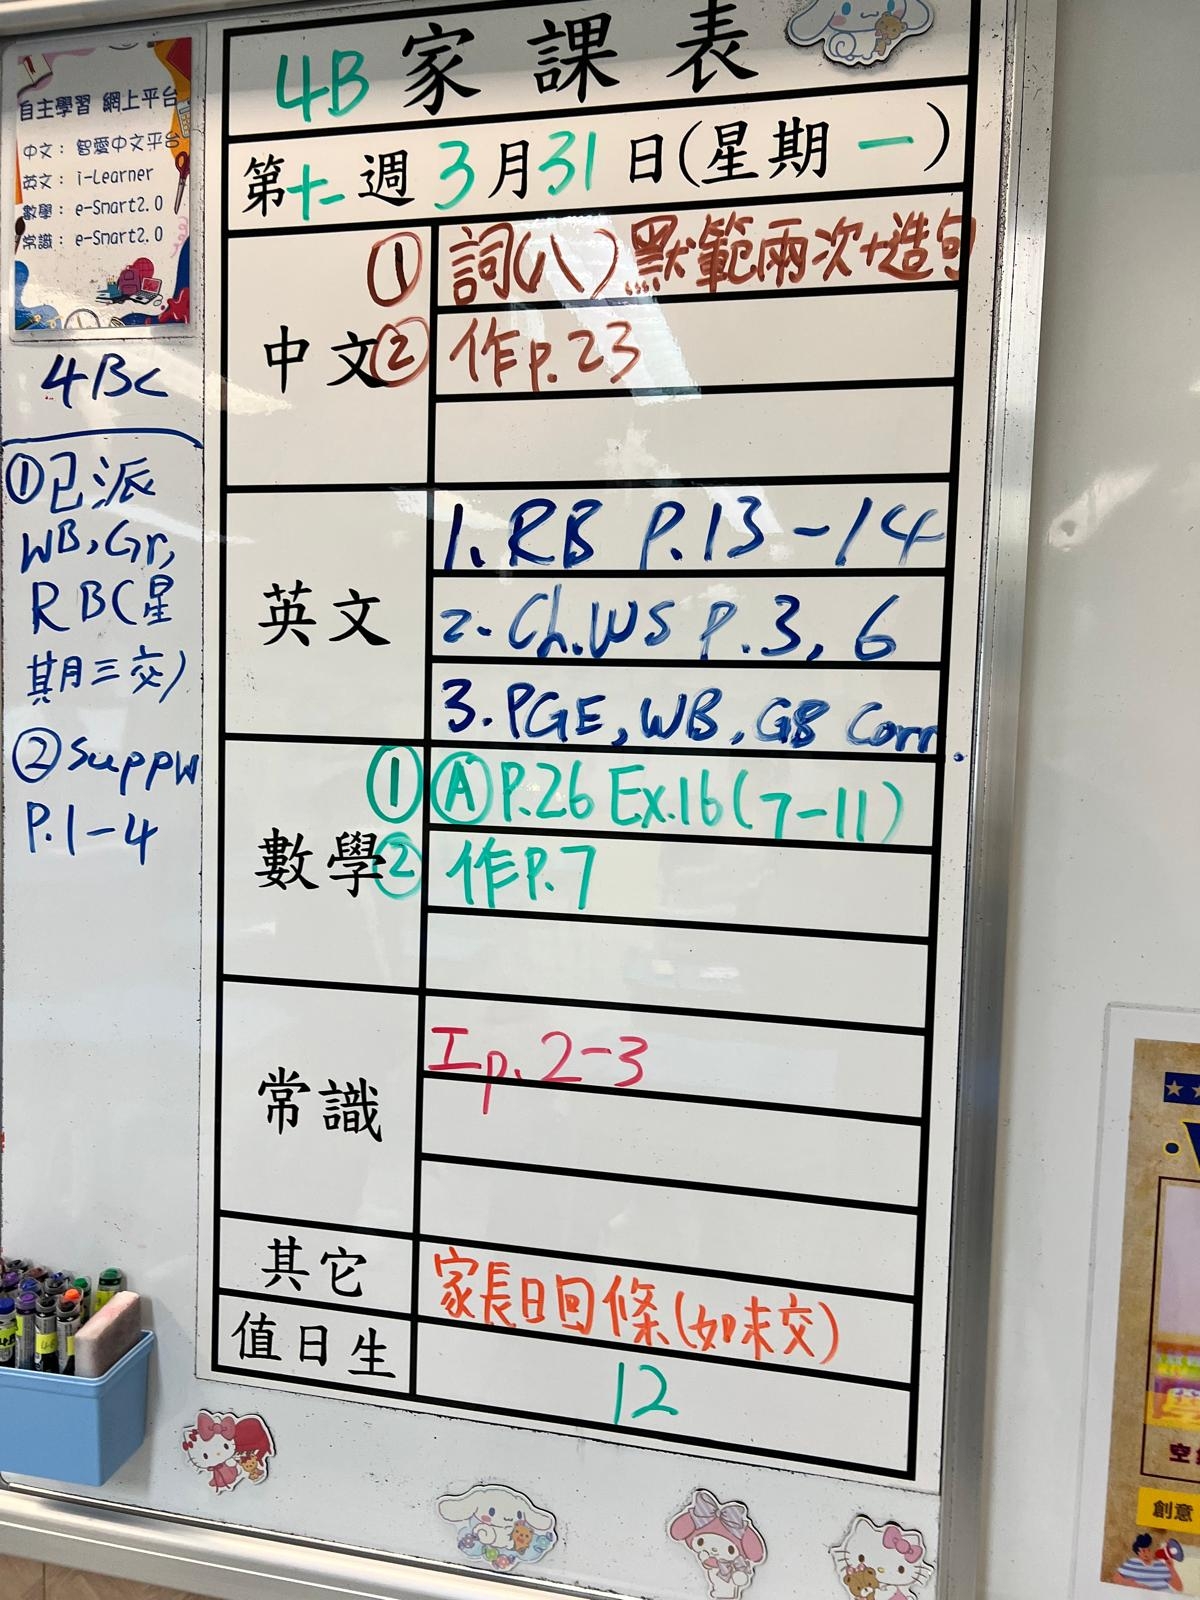 自主學習 網上平台
中文： 智愛中文平台
英文： i-Learner
數學： e-Smart2.0
常識： e-Smart2.0
4Bc
①已派
WB, Gr,
RB(星
期三交)
②SuppW
P.1-4
4B 家課表
第十二週 3月31日(星期一)
中文
① 詞(八)默範兩次+造句
② 作p.23
英文
1. RB P.13-14
2. Ch.WS P.3, 6
3. PGE, WB, GB Corr.
數學
① Ⓐ P.26 Ex.16(7-11)
② 作P.7
常識
工p.2-3
其它
家長日回條(如未交)
值日生
12
創意